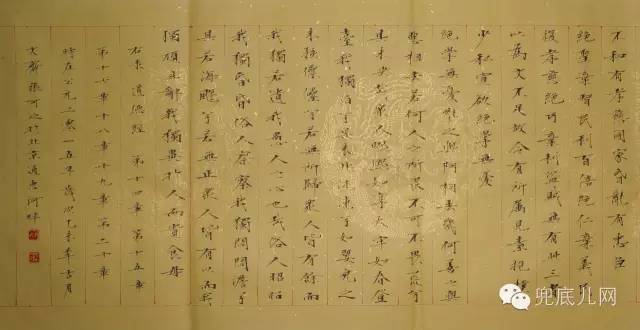 不和有孝慈國家昏亂有忠臣
絕聖棄智民利百倍絕仁棄義民
復孝慈絕巧棄利盜賊無有此三者
以為文不足故令有所屬見素抱樸
少私寡欲絕學無憂
絕學無憂唯之與阿相去幾何善之與
惡相去若何人之所畏不可不畏荒兮
其未央哉眾人熙熙如享太牢如春登
臺我獨泊兮其未兆如嬰兒之
未孩儽儽兮若無所歸眾人皆有餘而
我獨若遺我愚人之心也哉俗人昭昭
我獨昏昏俗人察察我獨悶悶澹兮
其若海飂兮若無止眾人皆有以而我
獨頑且鄙我獨異於人而貴食母
右录道德經 第十四章 第十五章
第十七章十八章十九章第二十章
時在公元二零一五年歲次乙未年吉月
文齋張可之於北京通州河畔
兜底儿网